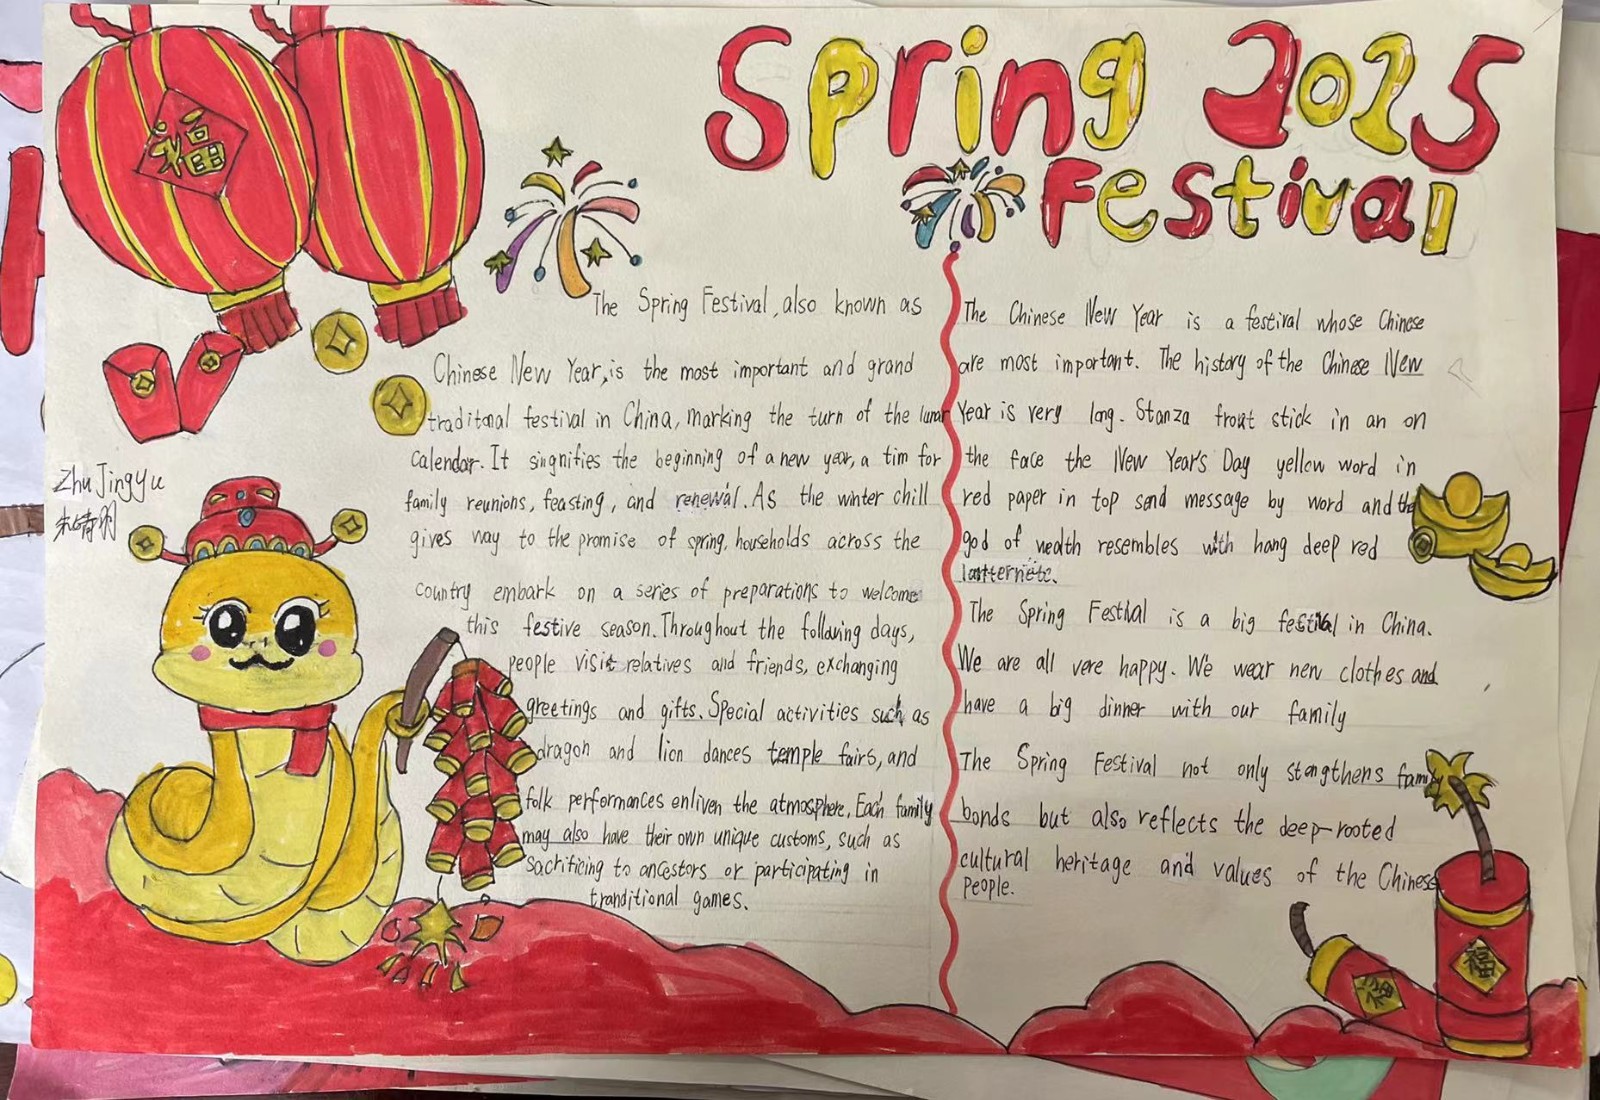 Spring 2025
Festival
福
The Spring Festival, also known as
Chinese New Year, is the most important and grand
traditonal festival in China, marking the turn of the lunar
calendar. It singnifies the beginning of a new year, a tim for
family reunions, feasting, and renewal. As the winter chill
gives way to the promise of spring, households across the
country embark on a series of preparations to welcome
this festive season. Throughout the following days,
people visit relatives and friends, exchanging
greetings and gifts. Special activities such as
dragon and lion dances temple fairs, and
folk performances enliven the atmosphere. Each family
may also have their own unique customs, such as
Sacrificing to ancestors or participating in
tranditional games.
Zhu Jingyu
The Chinese New Year is a festival whose Chinese
are most important. The history of the Chinese New
Year is very long. Stanza frout stick in an on
the face the New Year's Day yellow word in
red paper in top send message by word and the
god of wealth resembles with hang deep red
The Spring Festival is a big festival in China.
We are all vere happy. We wear new clothes and
have a big dinner with our family
The Spring Festival not only stongthens family
bonds but also reflects the deep-rooted
cultural heritage and values of the Chinese
People.
福
福